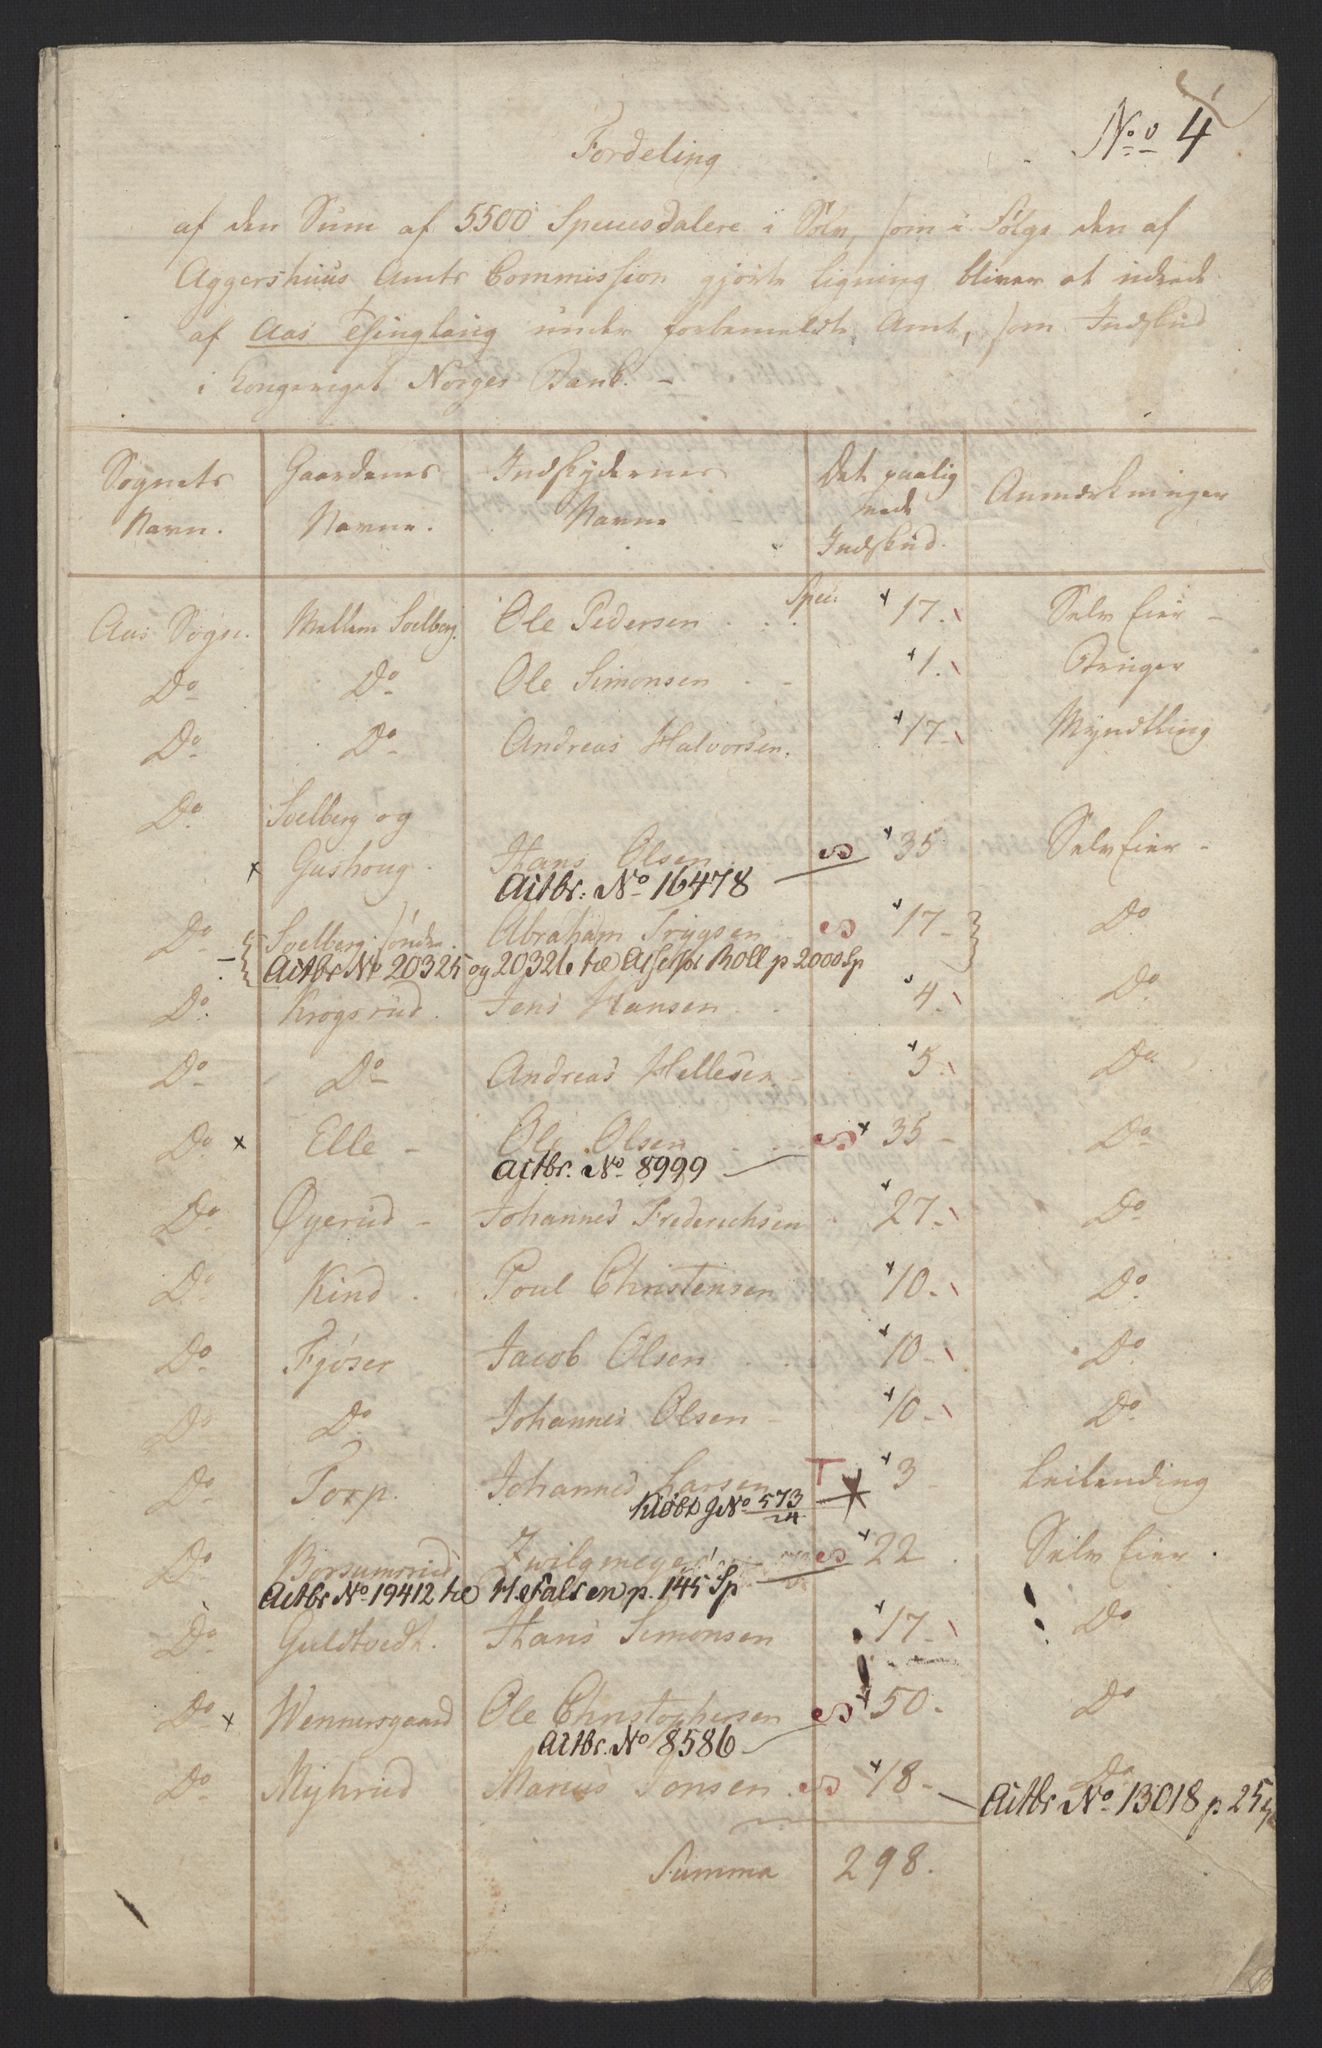 No 4
Fordeling
af den Sum af 5500 Speciesdalere i Sølv, som i Følge den af
Aggershuus Amts Commission gjorte Ligning bliver at udrede
af Aas Thinglaug under forbemeldte Amt, som Indskud
i Kongeriget Norges Bank. -
Sognets Navn. | Gaardenes Navne. | Indskydernes Navne | Det paalignede Indskud. | Anmærkninger
Aas Sogn. | Mellem Soelberg. | Ole Pedersen . . . Spec: | 17. | Selv Eier -
Do | Do | Ole Simonsen - - | 1. |
Do | Do | Andreas Halvorsen. | 17 - | Myndtling
Do | Soelberg og
Gushoug. | Hans Olsen | S 35 | Selv Eier -
Actbr: No 16478
Do | Soelberg søndre. | Abraham Trygsen | S 17 - | Do
Actbr No 20325 og 20326 til Assessor Roll p 2000 Sp
Do | Krogsrud. | Jens Hansen - - | 4. | Do
Do | Do | Andreas Hellesen | 5. | Do
Do x | Elle - | Ole Olsen | S 35 - | Do
Actbr. No 8999
Do | Øyerud - | Johannes Frederichsen | 27 - | Do
Do | Kind . | Poul Christensen | 10 - | Do
Do | Fjøser | Jacob Olsen . . | 10 - | Do
Do | Do | Johannes Olsen - | 10 - | Do
Do | Torp | Johannes Larsen | T 3 - | Leilending
Kiøbs g No 573/24
Do | Borsumsrud | Zwilgmeyer | S 22 . | Selv Eier .
Actbr No 19412 til H. Falsen p. 145 Sp
Do | Guldtvedt. | Hans Simonsen | 17 - | Do
Do x | Wennersgaard | Ole Christophersen | S 50. | Do
Actbr. No 8586
Do | Myhrud | Marius Jonsen . | S 18 - | Do
Actbr No 13018 p 25
Summa | 298.